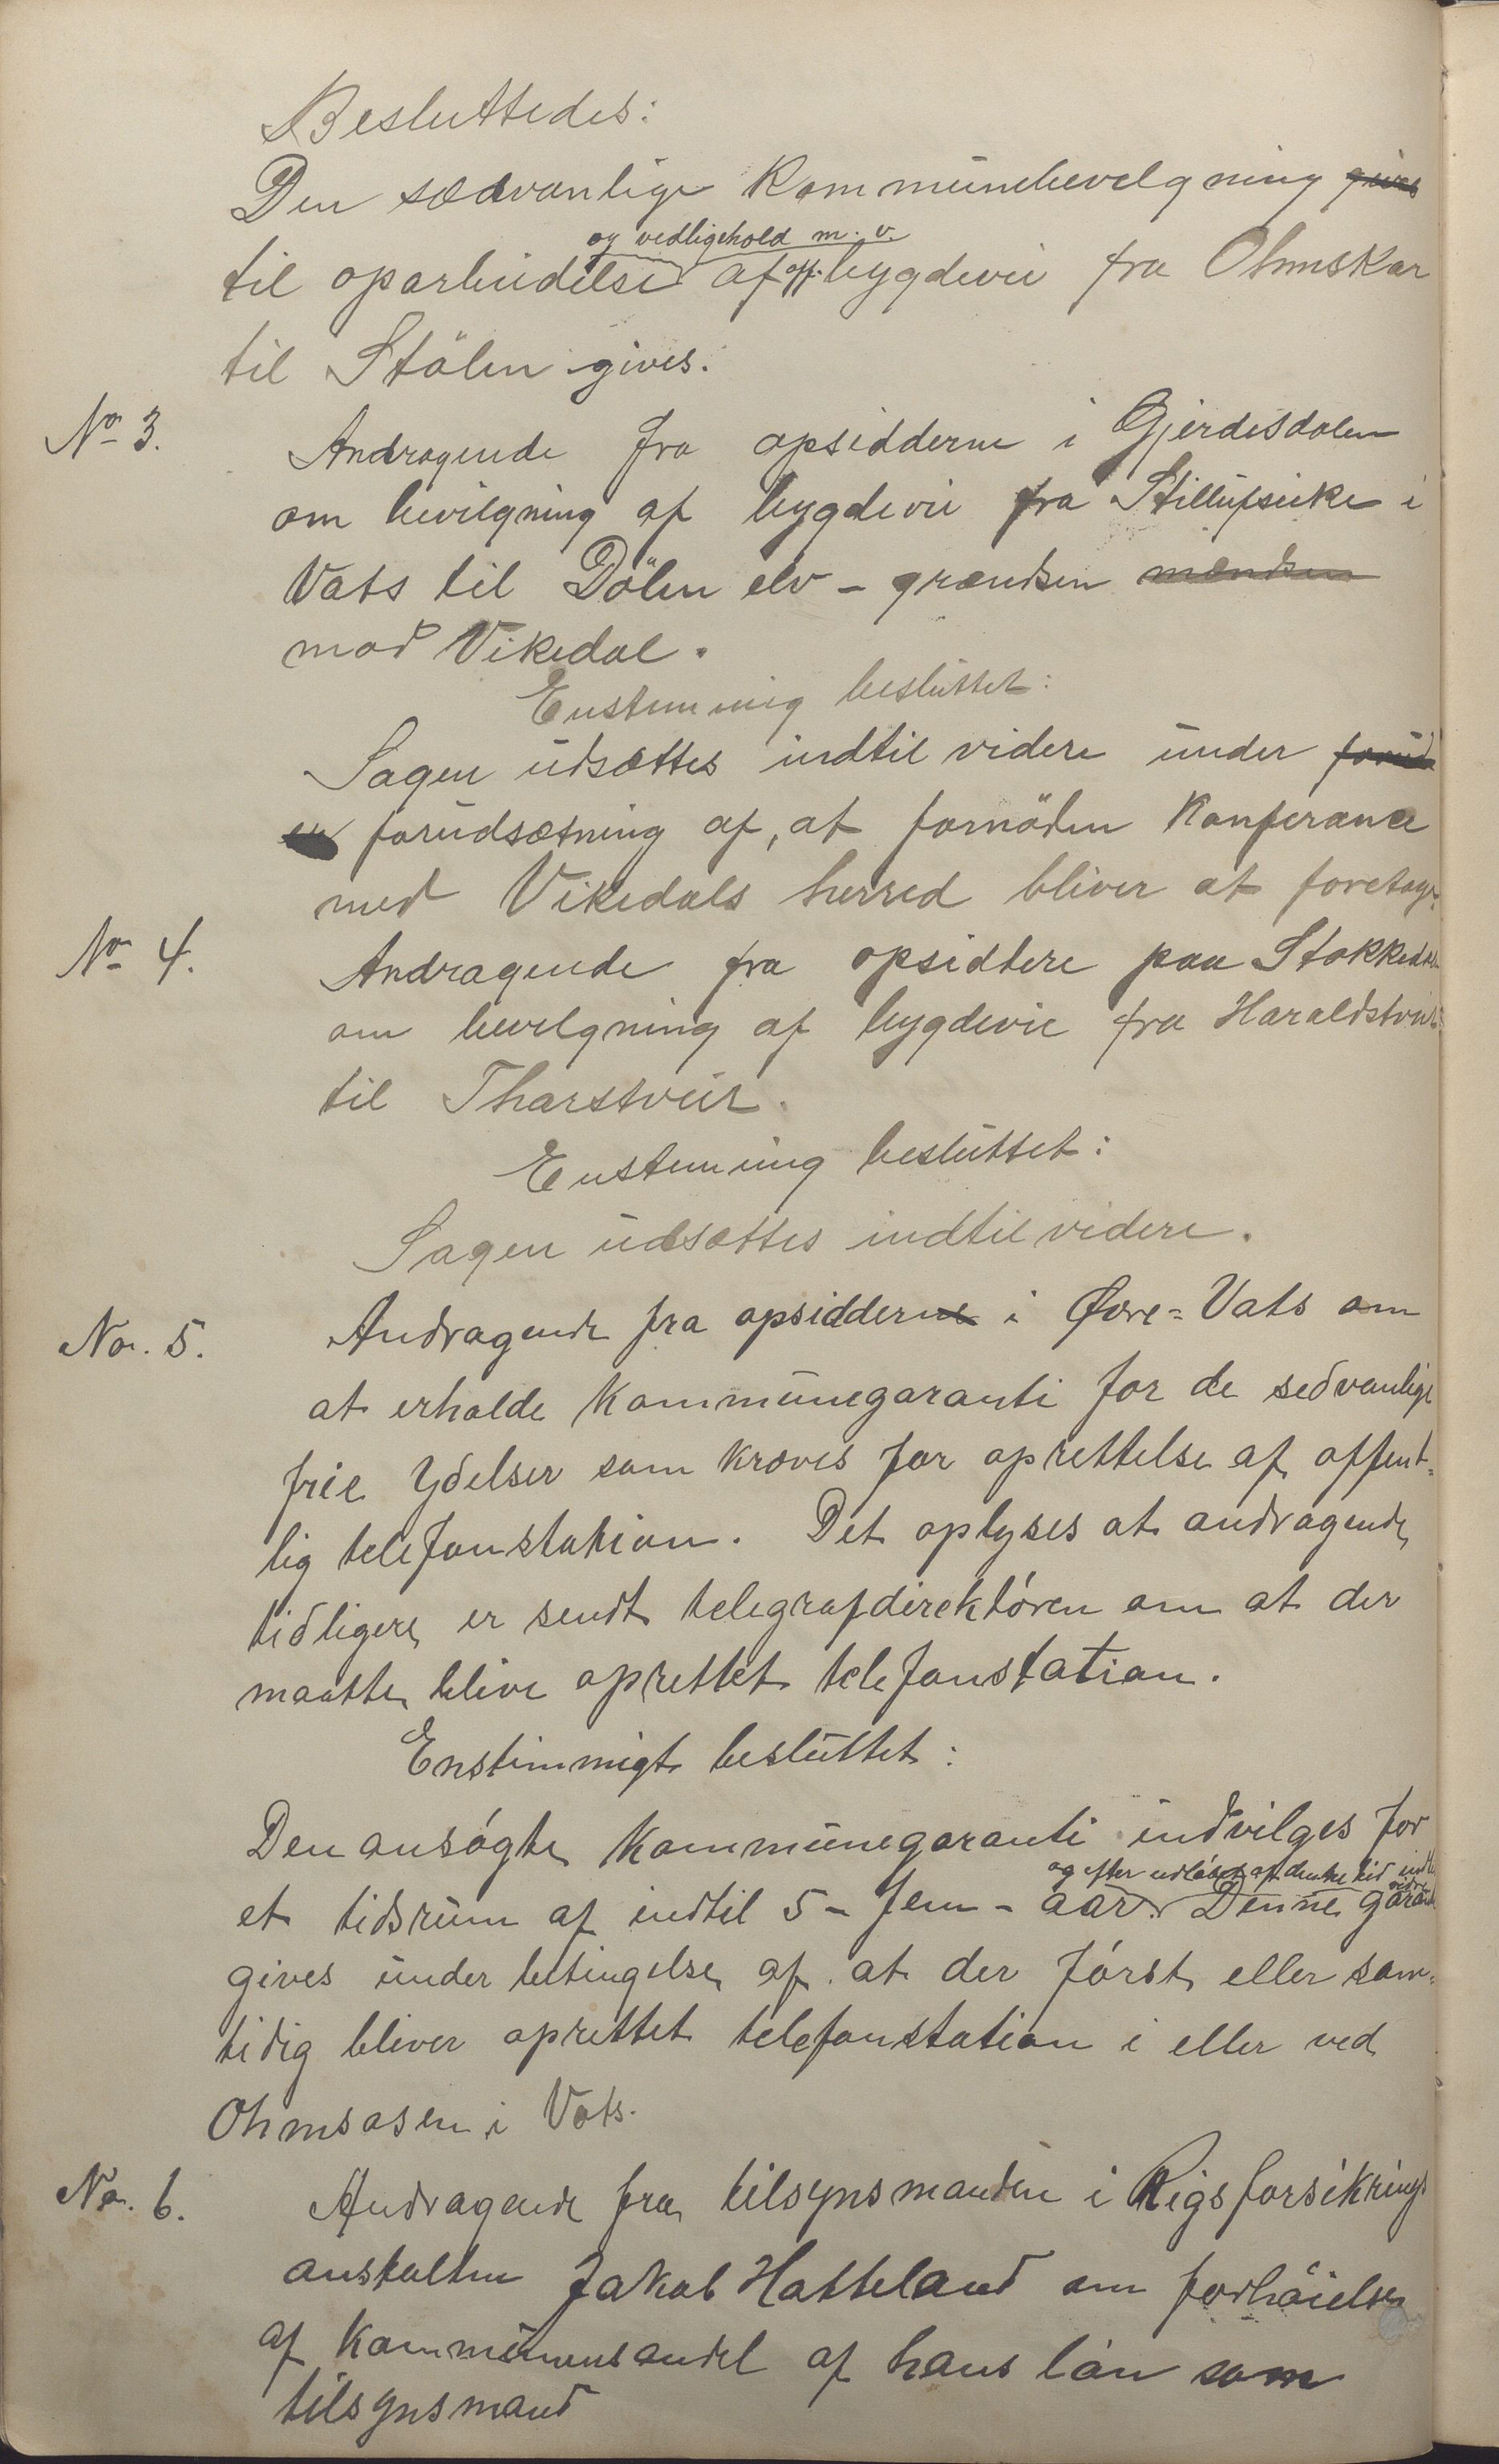 Besluttedes:
Den sædvanlige Kommunebevilgning gives
og vedligehold m. v.
til oparbeidelse af off. bygdevei fra Ohmskar
til Stölen gives.
No 3.
Andragende fra opsidderne i Gjerdesdalen
om bevilgning af bygdevei fra i
Vats til Dölen elv - grændsen
mod Vikedal.
Enstemmig besluttet:
Sagen udsættes indtil videre under
forudsætning af, at fornöden Konferance
med Vikedals herred bliver at foretage.
No 4.
Andragende fra opsiddere paa
om bevilgning af bygdevei fra Haraldstveit
til Tharstveit.
Enstemmig besluttet:
Sagen udsættes indtil videre.
No. 5.
Andragende fra opsidderne i Øvre-Vats om
at erholde Kommunegaranti for de sedvanlige
frie ydelser som kræves for oprettelse af offent-
lig telefonstation. Det oplyses at andragende
tidligere er sendt telegrafdirektóren om at der
maatte blive oprettet telefonstation.
Enstimmigt besluttet:
Den ansógte Kommunegaranti indvilges for
og efter udlóbet af denne tid indtil
videre
et tidsrum af indtil 5 - fem - aar. Denne garanti
gives under betingelse af at der fórst eller sam-
tidig bliver oprettet telefonstation i eller ved
Ohmsosen i Vats.
No. 6.
Andragende fra tilsynsmanden i Rigsforsikrings
anstalten Jakob Hatteland om forhöielse
af Kommunens andel af hans lón som
tilsynsmand